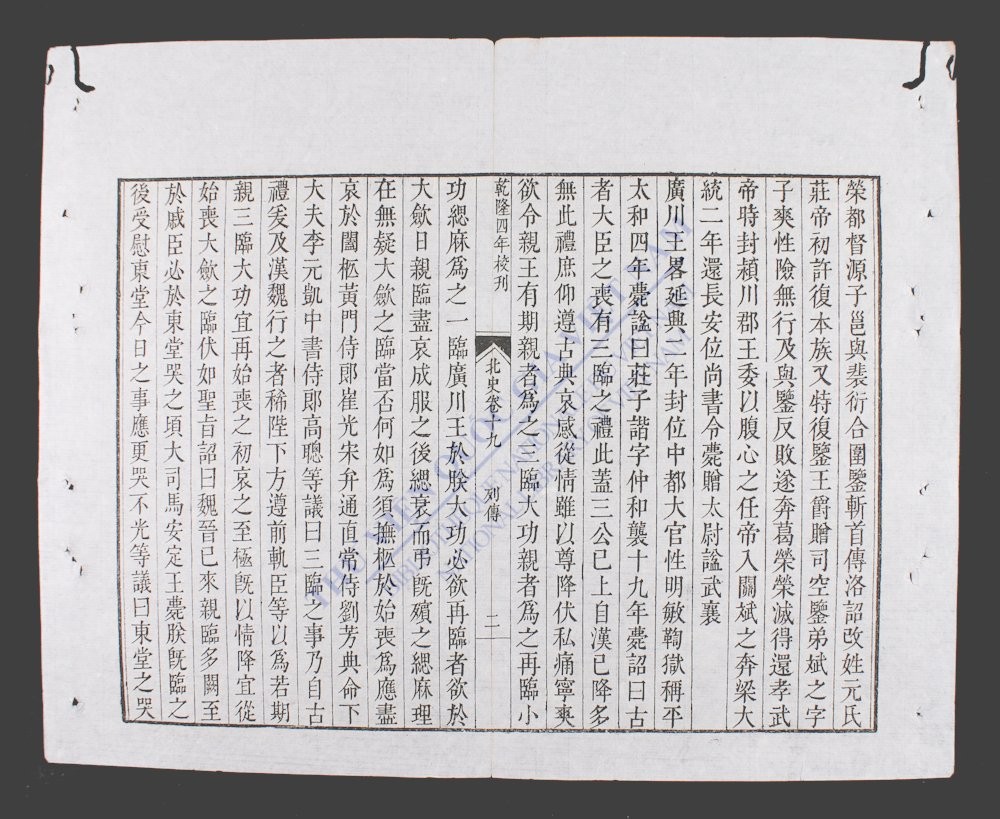 榮都督源子邕與裴衍合圍鑒斬首傳洛詔改姓元氏
莊帝初許復本族又特復鑒王爵贈司空鑒弟斌之字
子爽性險無行及與鑒反敗遂奔葛榮榮滅得還孝武
帝時封潁川郡王委以腹心之任帝入關斌之奔梁大
統二年還長安位尚書令薨贈太尉諡武襄
廣川王畧延興二年封位中都大官性明敏鞫獄稱平
太和四年薨諡曰莊子諧字仲和襲十九年薨詔曰古
者大臣之喪有三臨之禮此蓋三公已上自漢已降多
無此禮庶仰遵古典哀感從情雖以尊降伏私痛寧爽
欲令親王有期親者爲之三臨大功親者爲之再臨小
乾隆四年校刊
北史卷十九
列傳
二
功緦麻爲之一臨廣川王於朕大功必欲再臨者欲於
大歛日親臨盡哀成服之後緦衰而弔旣殯之緦麻理
在無疑大歛之臨當否何如爲須撫柩於始喪爲應盡
哀於闔柩黃門侍郎崔光宋弁通直常侍劉芳典命下
大夫李元凱中書侍郎高聰等議曰三臨之事乃自古
禮爰及漢魏行之者稀陛下方遵前軌臣等以爲若期
親三臨大功宜再始喪之初哀之至極旣以情降宜從
始喪大歛之臨伏如聖旨詔曰魏晉已來親臨多闕至
於戚臣必於東堂哭之頃大司馬安定王薨朕旣臨之
後受慰東堂今日之事應更哭不光等議曰東堂之哭
THƯ VIỆN QUỐC GIA VIỆT NAM
NATIONAL LIBRARY OF VIETNAM